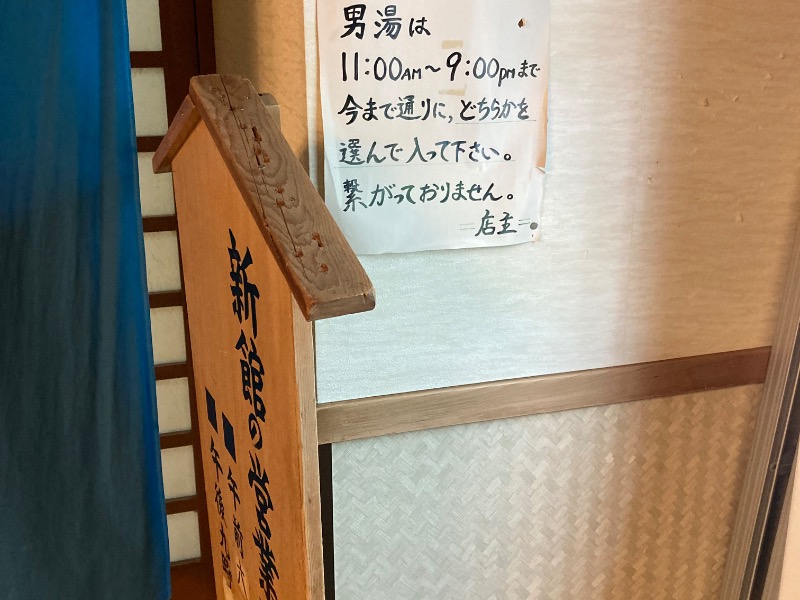 男湯は
11:00AM～9:00pmまで
今まで通りに,どちらかを
選んで入って下さい。
繋がっておりません。
＝店主＝
新館の営業